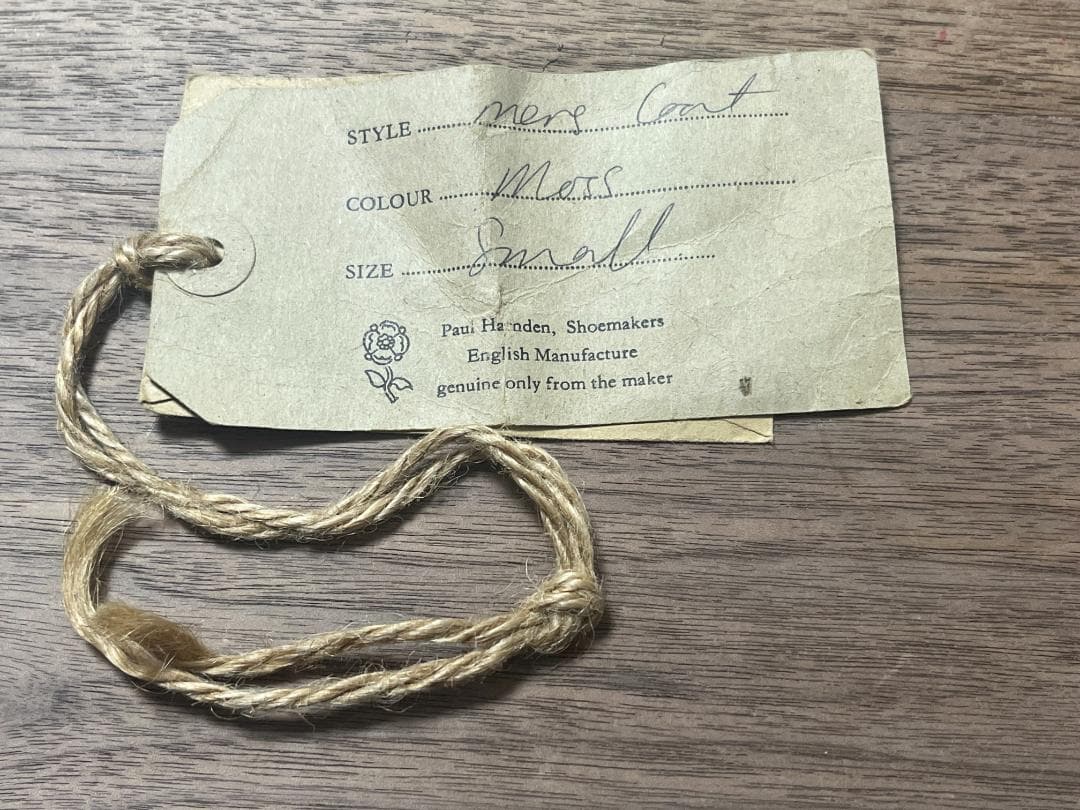 STYLE mens Coat
COLOUR Moss
SIZE Small
Paul Harnden, Shoemakers
English Manufacture
genuine only from the maker